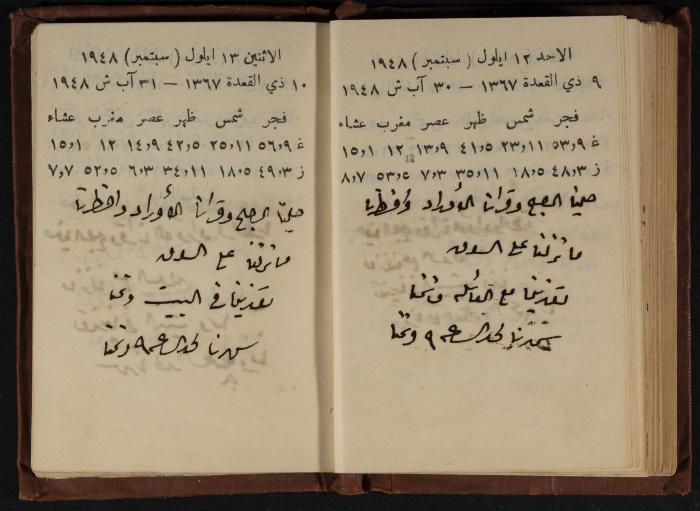 الاحد ١٢ ايلول (سبتمبر) ١٩٤٨
٩ ذي القعدة ١٣٦٧ — ٣٠ آب ش ١٩٤٨
فجر شمس ظهر عصر مغرب عشاء
غ ٥٣و٩ ٢٣و١١ ٤١و٥ ١٣و٩ ١٢ ١و١٥
ز ٤٨و٣ ١٨و٥ ٣٥و١١ ٧و٣ ٥٣و٥ ٨و٧
صلينا الصبح وقرانا الأوراد وافطرنا
ما نزلنا على السوق
تغذينا مع العائله ونمنا
سهرنا لحد الساعه ٩ ونمنا
الاثنين ١٣ ايلول (سبتمبر) ١٩٤٨
١٠ ذي القعدة ١٣٦٧ — ٣١ آب ش ١٩٤٨
فجر شمس ظهر عصر مغرب عشاء
غ ٥٦و٩ ٢٥و١١ ٤٢و٥ ١٤و٩ ١٢ ١و١٥
ز ٤٩و٣ ١٨و٥ ٣٤و١١ ٦و٣ ٥٢و٥ ٧و٧
صلينا الصبح وقرانا الأوراد وافطرنا
ما نزلنا على السوق
تغذينا في البيت ونمنا
سهرنا لحد الساعه ٩ ونمنا